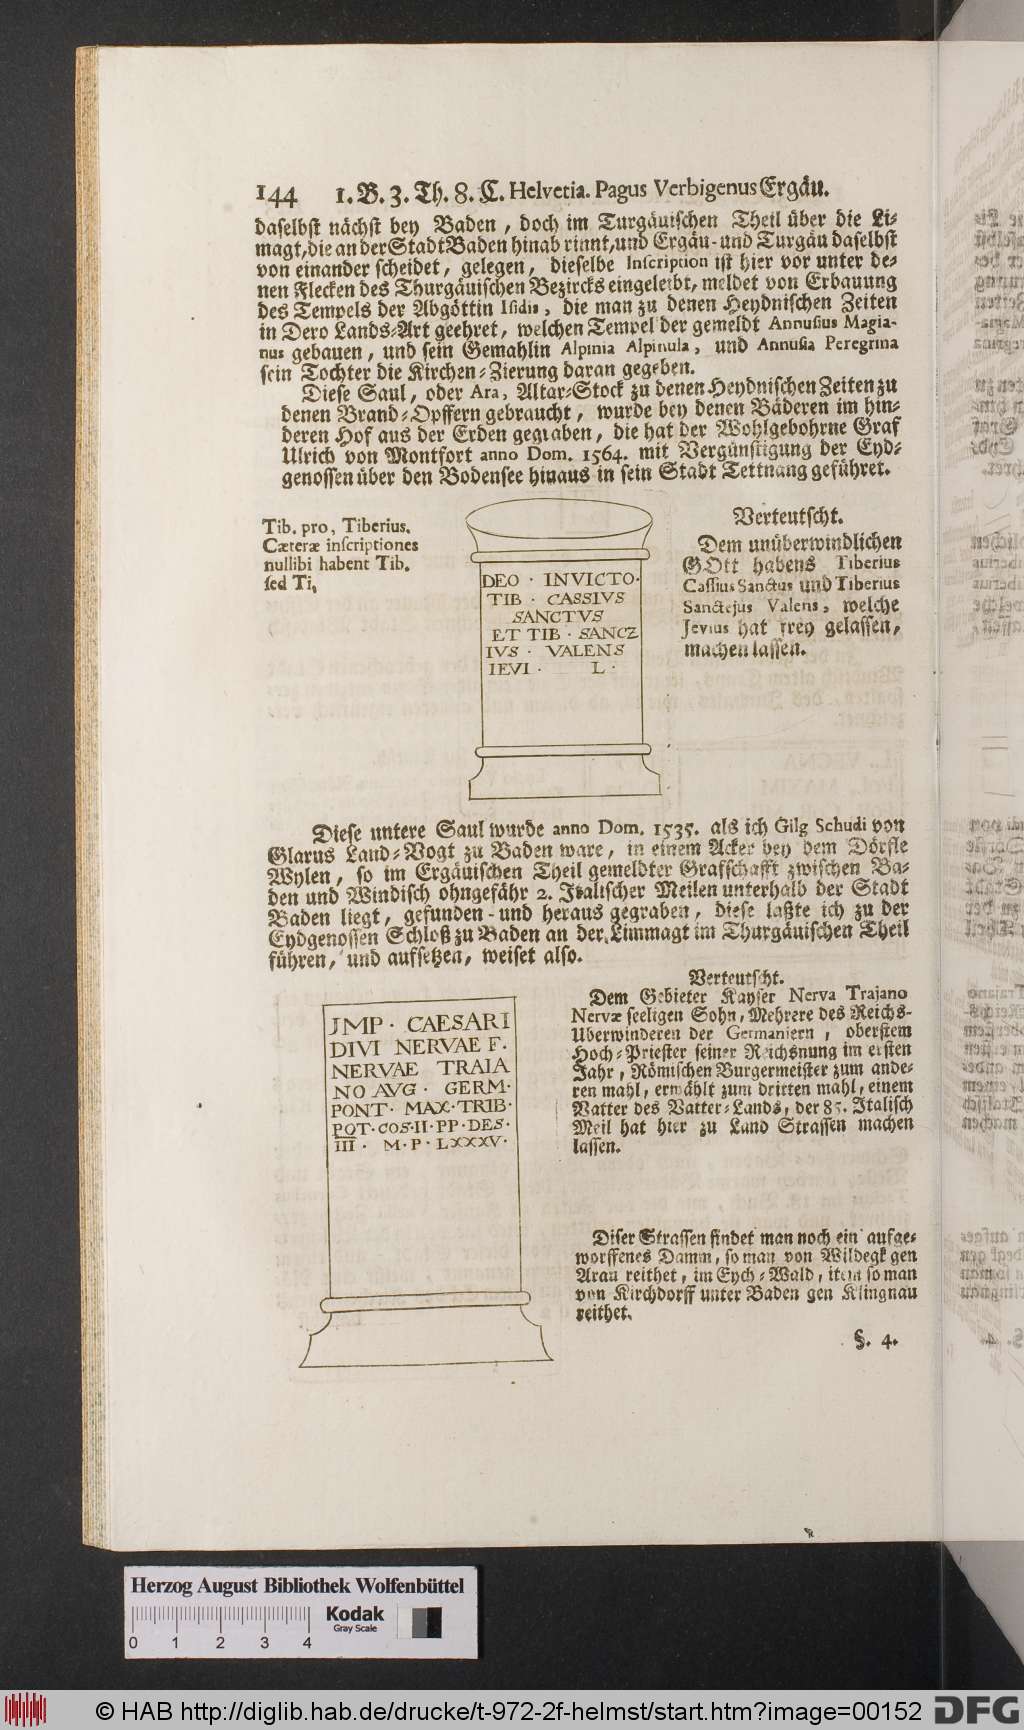 144 1. B. 3. Th. 8. C. Helvetia. Pagus Verbigenus Ergäu.
daselbst nächst bey Baden, doch im Turgäuischen Theil über die Li-
magt, die an der Stadt Baden hinab rinnt, und Ergäu- und Turgäu daselbst
von einander scheidet, gelegen, dieselbe Inscription ist hier vor unter de-
nen Flecken des Thurgäuischen Bezircks eingeleibt, meldet von Erbauung
des Tempels der Abgöttin Isidis, die man zu denen Heydnischen Zeiten
in Dero Lands-Art geehret, welchen Tempel der gemeldt Annusius Magia-
nus gebauen, und sein Gemahlin Alpinia Alpinula, und Annusia Peregrina
sein Tochter die Kirchen-Zierung daran gegeben.
Diese Saul, oder Ara, Altar-Stock zu denen Heydnischen Zeiten zu
denen Brand-Opffern gebraucht, wurde bey denen Bäderen im hin-
deren Hof aus der Erden gegraben, die hat der Wohlgebohrne Graf
Ulrich von Montfort anno Dom. 1564. mit Vergünstigung der Eyd-
genossen über den Bodensee hinaus in sein Stadt Tettnang geführet.
Tib. pro, Tiberius.
Cæteræ inscriptiones
nullibi habent Tib.
sed Ti.
DEO · INVICTO·
TIB · CASSIVS
SANCTVS
ET TIB · SANCZ
IVS · VALENS
IEVI · L ·
Verteutscht.
Dem unüberwindlichen
GOtt habens Tiberius
Cassius Sanctus und Tiberius
Sanctejus Valens, welche
Jevius hat frey gelassen,
machen lassen.
Diese untere Saul wurde anno Dom. 1535. als ich Gilg Schudi von
Glarus Land-Vogt zu Baden ware, in einem Acker bey dem Dörfle
Wylen, so im Ergäuischen Theil gemeldter Grafschafft zwischen Ba-
den und Windisch ohngefähr 2. Italischer Meilen unterhalb der Stadt
Baden liegt, gefunden- und heraus gegraben, diese laßte ich zu der
Eydgenossen Schloß zu Baden an der Limmagt im Thurgäuischen Theil
führen, und aufsetzen, weiset also.
JMP · CAESARI
DIVI NERVAE F.
NERVAE TRAIA
NO AVG · GERM·
PONT· MAX·TRIB·
POT·COS·II·PP·DES·
III · M·P·LXXXV·
Verteutscht.
Dem Gebieter Kayser Nerva Trajano
Nervæ seeligen Sohn, Mehrere des Reichs-
Uberwinderen der Germaniern, oberstem
Hoch-Priester seiner Reichsnung im ersten
Jahr, Römischen Burgermeister zum ande-
ren mahl, erwählt zum dritten mahl, einem
Vatter des Vatter-Lands, der 85. Italisch
Meil hat hier zu Land Strassen machen
lassen.
Diser Strassen findet man noch ein aufge-
worffenes Damm, so man von Wildegk gen
Arau reithet, im Eych-Wald, item so man
von Kirchdorff unter Baden gen Klingnau
reithet.
§. 4.
Herzog August Bibliothek Wolfenbüttel
0 1 2 3 4
Kodak
Gray Scale
© HAB http://diglib.hab.de/drucke/t-972-2f-helmst/start.htm?image=00152
DFG